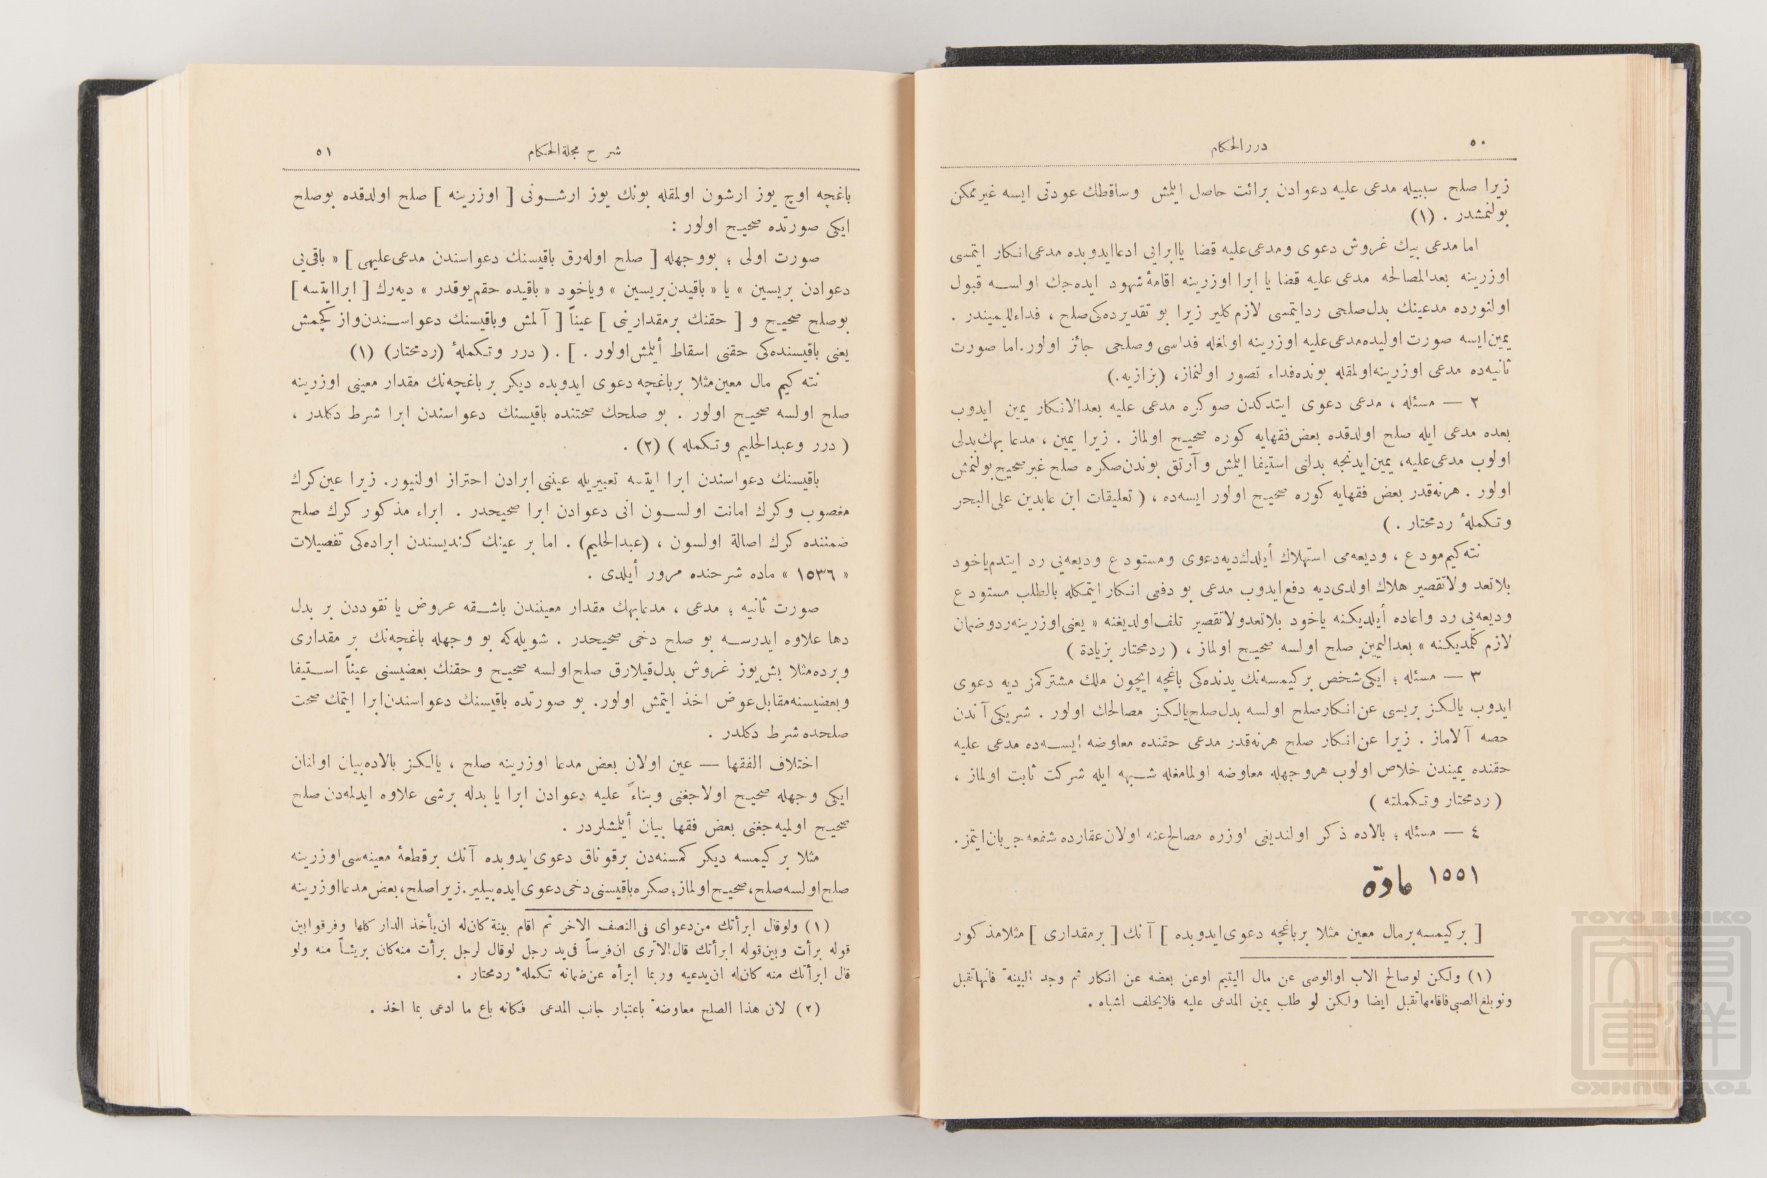 ٥٠
دررالحكام
زيرا صلح سببيله مدعى عليه دعوادن برائت حاصل ايتمش وساقطك عودتى ايسه غيرممكن
بولنمشدر . (١)
اما مدعى بيك غروش دعوى ومدعى‌عليه قضا ياابرايى ادعاايدوبده مدعى‌انكار ايتمسى
اوزرينه بعدالمصالحه مدعى عليه قضا يا ابرا اوزرينه اقامهٔ شهود ايده‌جك اولسه قبول
اولنورده مدعينك بدل‌صلحى ردايتمسى لازم كلير زيرا بو تقديرده‌كى صلح ، فداءلليميندر .
يمين‌ايسه صورت اوليده‌مدعى‌عليه اوزرينه اولمغله فداسى وصلحى جائز اولور.اما صورت
ثانيه‌ده مدعى اوزرينه‌اولمقله بونده‌فداء تصور اولنماز، (بزازيه.)
٢ — مسئله ، مدعى دعوى ايتدكدن صوكره مدعى عليه بعدالانكار يمين ايدوب
بعده مدعى ايله صلح اولدقده بعض‌فقهايه كوره صحيح اولماز . زيرا يمين ، مدعابهك‌بدلى
اولوب مدعى‌عليه، يمين‌ايدنجه بدلنى استيفا ايتمش وآرتق بوندن‌صكره صلح غيرصحيح‌بولنمش
اولور . هرنه‌قدر بعض فقهايه كوره صحيح اولور ايسه‌ده ، ( تعليقات ابن عابدين على‌البحر
وتكملهٔ ردمحتار . )
نته‌كيم‌مودع ، وديعه‌مى استهلاك أيلدك‌ديه‌دعوى ومستودع وديعه‌يى رد ايتدم‌ياخود
بلاتعد ولاتقصير هلاك اولدى‌ديه دفع‌ايدوب مدعى بو دفعى انكار ايتمكله بالطلب مستودع
وديعه‌يى رد واعاده أيلديكنه ياخود بلاتعدولاتقصير تلف‌اولديغنه « يعنى‌اوزرينه‌ردوضمان
لازم كلمديكنه » بعداليمين صلح اولسه صحيح اولماز ، ( ردمحتار بزيادة )
٣ — مسئله ؛ ايكى‌شخص بركيمسه‌نك يدنده‌كى باغچه ايچون ملك مشتركمز ديه دعوى
ايدوب يالكز بريسى عن‌انكارصلح اولسه بدل‌صلح‌يالكز مصالحك اولور . شريكى آندن
حصه آلاماز . زيرا عن‌انكار صلح هرنه‌قدر مدعى حقنده معاوضه ايسه‌ده مدعى عليه
حقنده يميندن خلاص اولوب هروجهله معاوضه اولمامغله شبهه ايله شركت ثابت اولماز ،
( ردمحتار وتكملته )
٤ — مسئله ؛ بالاده ذكر اولنديغى اوزره مصالح‌عنه اولان‌عقارده شفعه جريان‌ايتمز.
١٥٥١ مادّه
[ بركيمسه‌برمال معين مثلا برباغچه دعوى‌ايدوبده ] آنك [ برمقدارى ] مثلامذكور
(١) ولكن لوصالح الاب اوالوصى عن مال اليتيم اوعن بعضه عن انكار ثم وجد البينة فانهاتقبل
ونوبلغ‌الصبى‌فاقامهاتقبل ايضا ولكن لو طلب يمين المدعى عليه فلايحلف اشباه .
شرح مجلةالحكام
٥١
باغچه اوچ يوز ارشون اولمقله بونك يوز ارشونى [ اوزرينه ] صلح اولدقده بوصلح
ايكى صورتده صحيح اولور :
صورت اولى ؛ بووجهله [ صلح اوله‌رق باقيسنك دعواسندن مدعى‌عليهى ] « باقى‌يى
دعوادن بريسين » يا « باقيدن‌بريسين » وياخود « باقيده حقم‌يوقدر » ديه‌رك [ ابراايتسه ]
بوصلح صحيح و [ حقنك برمقدارنى ] عيناً [ آلمش وباقيسنك دعواسندن‌واز كچمش
يعنى باقيسنده‌كى حقنى اسقاط أيلمش‌اولور . ] . ( درر وتكملهٔ (ردمحتار) (١)
نته كيم مال معين‌مثلا برباغچه دعوى ايدوبده ديكر برباغچه‌نك مقدار معينى اوزرينه
صلح اولسه صحيح اولور . بو صلحك صحتنده باقيسنك دعواسندن ابرا شرط دكلدر ،
( درر وعبدالحليم وتكمله ) (٢) .
باقيسنك دعواسندن ابرا ايتسه تعبيريله عيننى‌ابرادن احتراز اولنيور. زيرا عين‌كرك
مغصوب وكرك امانت اولسون انى دعوادن ابرا صحيحدر . ابراء مذكور كرك صلح
ضمننده كرك اصالة اولسون ، (عبدالحليم) . اما بر عينك كنديسندن ابراده‌كى تفصيلات
« ١٥٣٦ » ماده شرحنده مرور أيلدى .
صورت ثانيه ؛ مدعى ، مدعابهك مقدار معينندن باشقه عروض يا نقوددن بر بدل
دها علاوه ايدرسه بو صلح دخى صحيحدر . شويله‌كه بو وجهله باغچه‌نك بر مقدارى
وبرده‌مثلا بش‌يوز غروش بدل‌قيلارق صلح‌اولسه صحيح وحقنك بعضيسنى عيناً استيفا
وبعضيسنه‌مقابل‌عوض اخذ ايتمش اولور. بو صورتده باقيسنك دعواسندن‌ابرا ايتمك صحت
صلحده شرط دكلدر .
اختلاف الفقها — عين اولان بعض مدعا اوزرينه صلح ، يالكز بالاده‌بيان اولنان
ايكى وجهله صحيح اولاجغنى وبناءً عليه دعوادن ابرا يا بدله برشى علاوه ايدلمه‌دن صلح
صحيح اولميه‌جغنى بعض فقها بيان أيلمشلردر .
مثلا بركيمسه ديكر كمسنه‌دن برقوناق دعوى‌ايدوبده آنك برقطعهٔ معينه‌سى‌اوزرينه
صلح‌اولسه‌صلح،صحيح‌اولماز؛صكره‌باقيسنى‌دخى‌دعوى‌ايده‌بيلير.زيراصلح،بعض مدعااوزرينه
(١) ولوقال ابرأتك من‌دعواى فى‌النصف الاخر ثم اقام بينة كان‌له ان‌يأخذ الدار كلها وفرقوابين
قوله برأت وبين‌قوله ابرأتك قال‌الاترى ان‌فرساً فى‌يد رجل لوقال لرجل برأت منه‌كان بريئاً منه ولو
قال ابرأتك منه كان‌له ان‌يدعيه وربما ابرأه عن‌ضمانه تكملهٔ ردمحتار .
(٢) لان هذا الصلح معاوضة باعتبار جانب المدعى فكانه باع ما ادعى بما اخذ .
TOYO BUNKO
東洋文庫
TOYO BUNKO